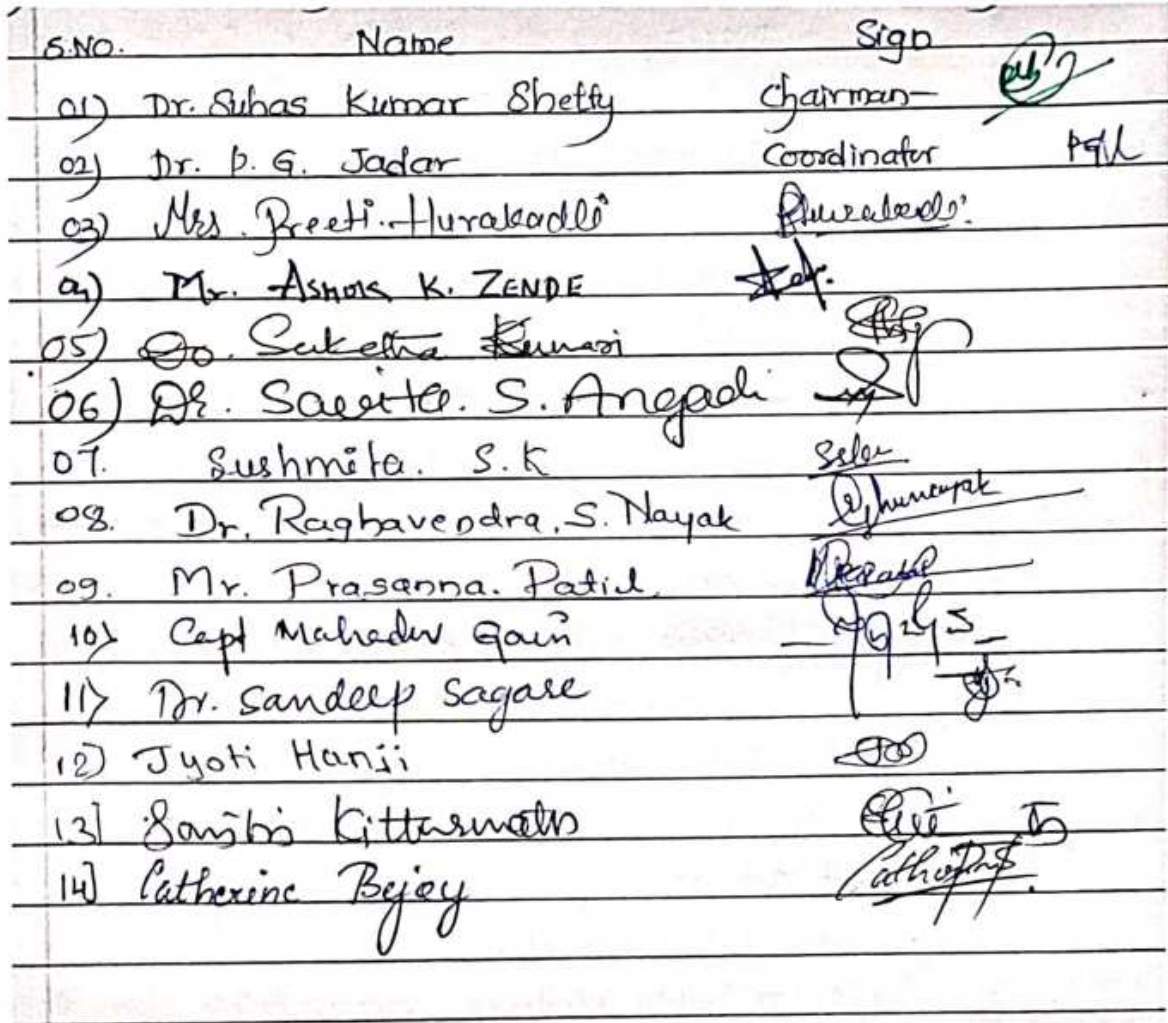 S.NO. Name Sign
01) Dr. Suhas Kumar Shetty Chairman-
02) Dr. P. G. Jadar Coordinator
03) Mrs. Preeti. Hurakadli
04) Mr. Ashok K. ZENDE
05) Suketha Kumari
06) Dr. Savita. S. Angadi
07. Sushmita. S.K
08. Dr. Raghavendra. S. Nayak
09. Mr. Prasanna. Patil.
10) Capt Mahadev Gain
11) Dr. Sandeep Sagare
12) Jyoti Hanji
13]
14] Catherine Bejoy